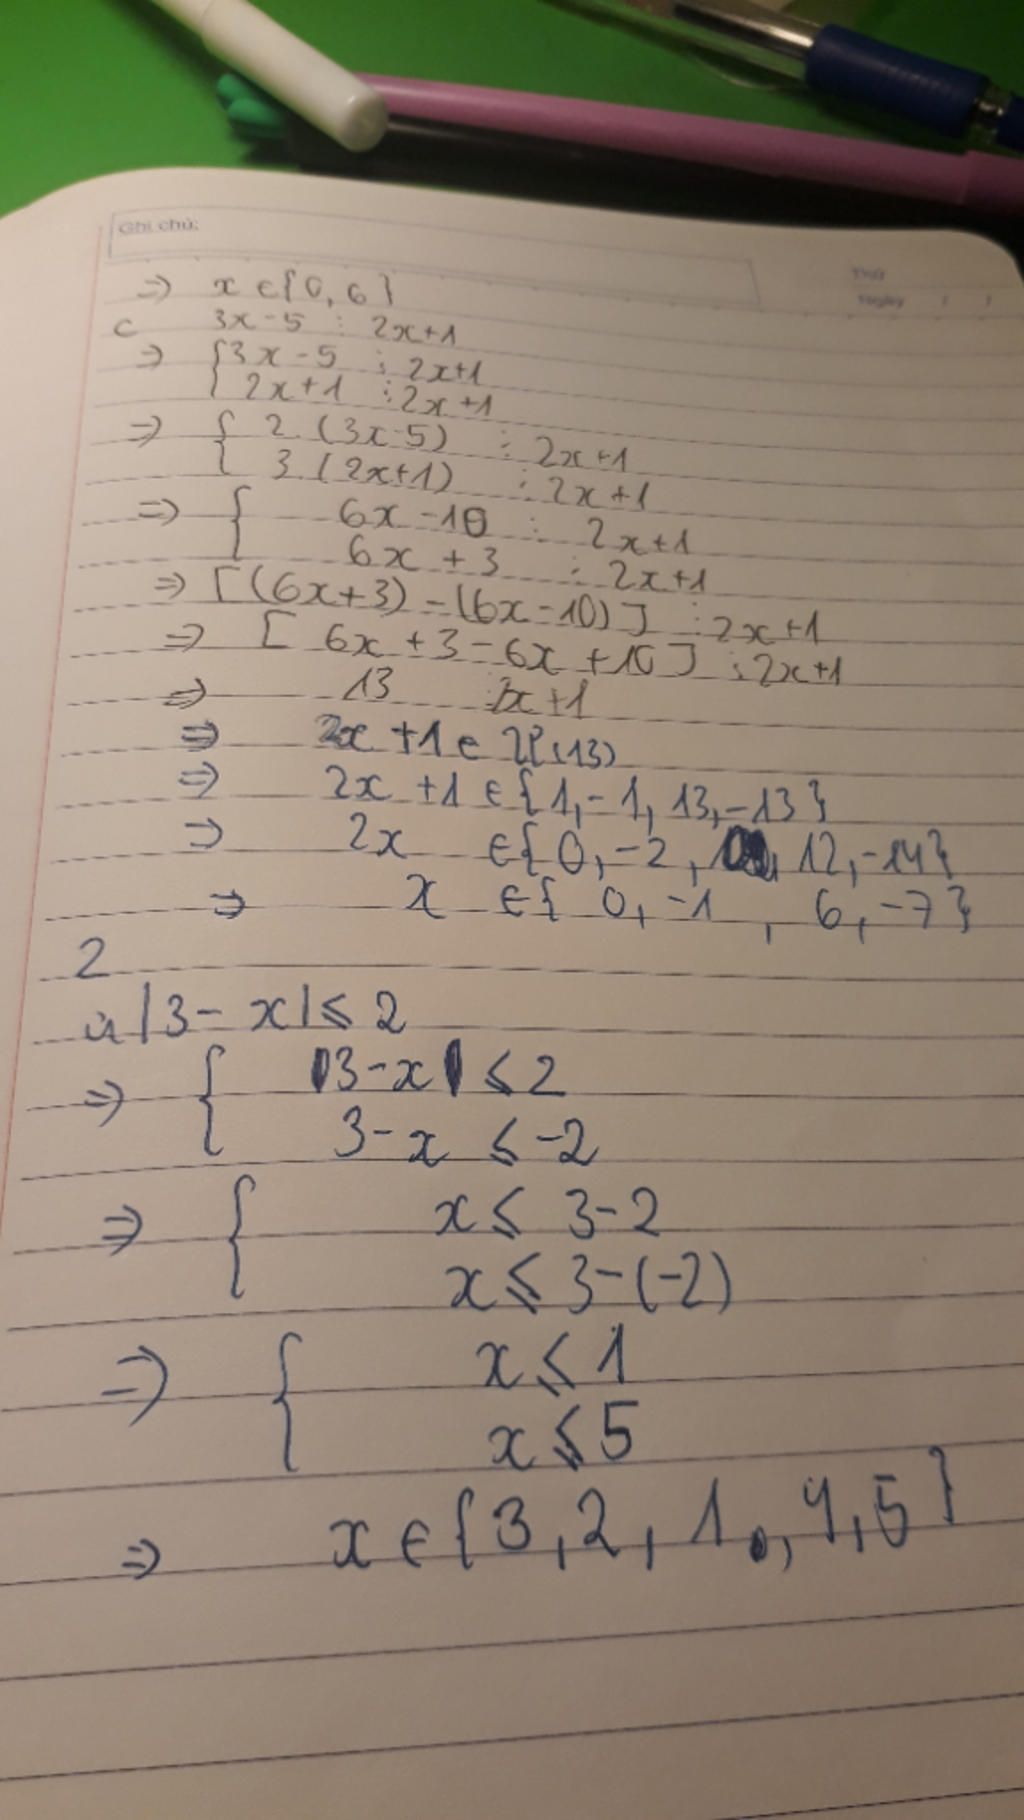 Ghi chú:
Thứ
Ngày / /
=> x ∈ {0, 6}
c 3x - 5 ⋮ 2x+1
=> { 3x - 5 ⋮ 2x+1
2x+1 ⋮ 2x+1
=> { 2.(3x-5) ⋮ 2x+1
3(2x+1) ⋮ 2x+1
=> { 6x - 10 ⋮ 2x+1
6x + 3 ⋮ 2x+1
=> [(6x+3) - (6x-10)] ⋮ 2x+1
=> [6x + 3 - 6x + 10] ⋮ 2x+1
=> 13 ⋮ 2x+1
=> 2x + 1 ∈ Ư(13)
=> 2x + 1 ∈ {1, -1, 13, -13}
=> 2x ∈ {0, -2, 12, -14}
=> x ∈ {0, -1, 6, -7}
2
a |3 - x| ≤ 2
=> { 3 - x ≤ 2
3 - x ≤ -2
=> { x ≤ 3 - 2
x ≤ 3 - (-2)
=> { x ≤ 1
x ≤ 5
=> x ∈ {3, 2, 1, 4, 5}